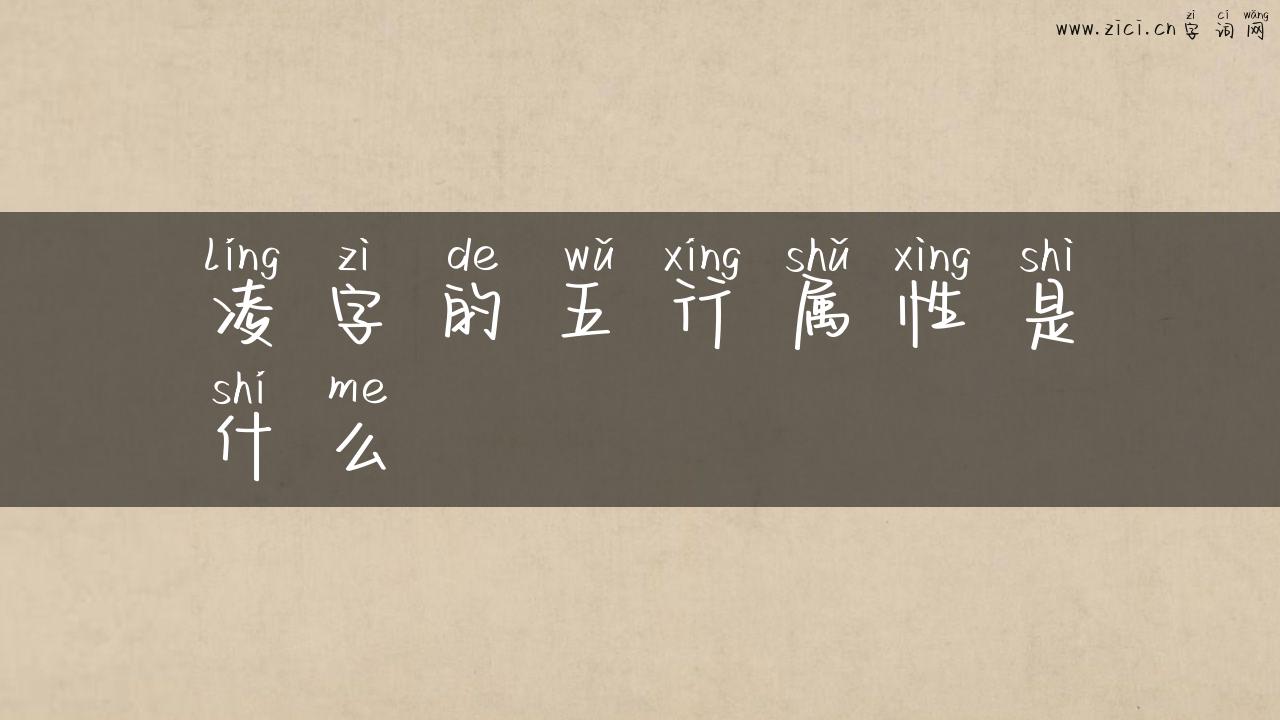 zì cí wǎng
www.zici.cn 字 词 网
líng zì de wǔ xíng shǔ xìng shì
凌 字 的 五 行 属 性 是
shí me
什 么